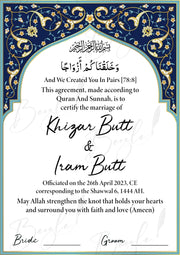 بِسْمِ اللهِ الرَّحْمٰنِ الرَّحِيْمِ
وَخَلَقْنَاكُمْ أَزْوَاجًا
And We Created You In Pairs [78:8]
This agreement, made according to
Quran And Sunnah, is to
certify the marriage of
Khizar Butt
&
Iram Butt
Officiated on the 26th April 2023, CE
corresponding to the Shawwal 6, 1444 AH.
May Allah strengthen the knot that holds your hearts
and surround you with faith and love (Ameen)
Bride Groom